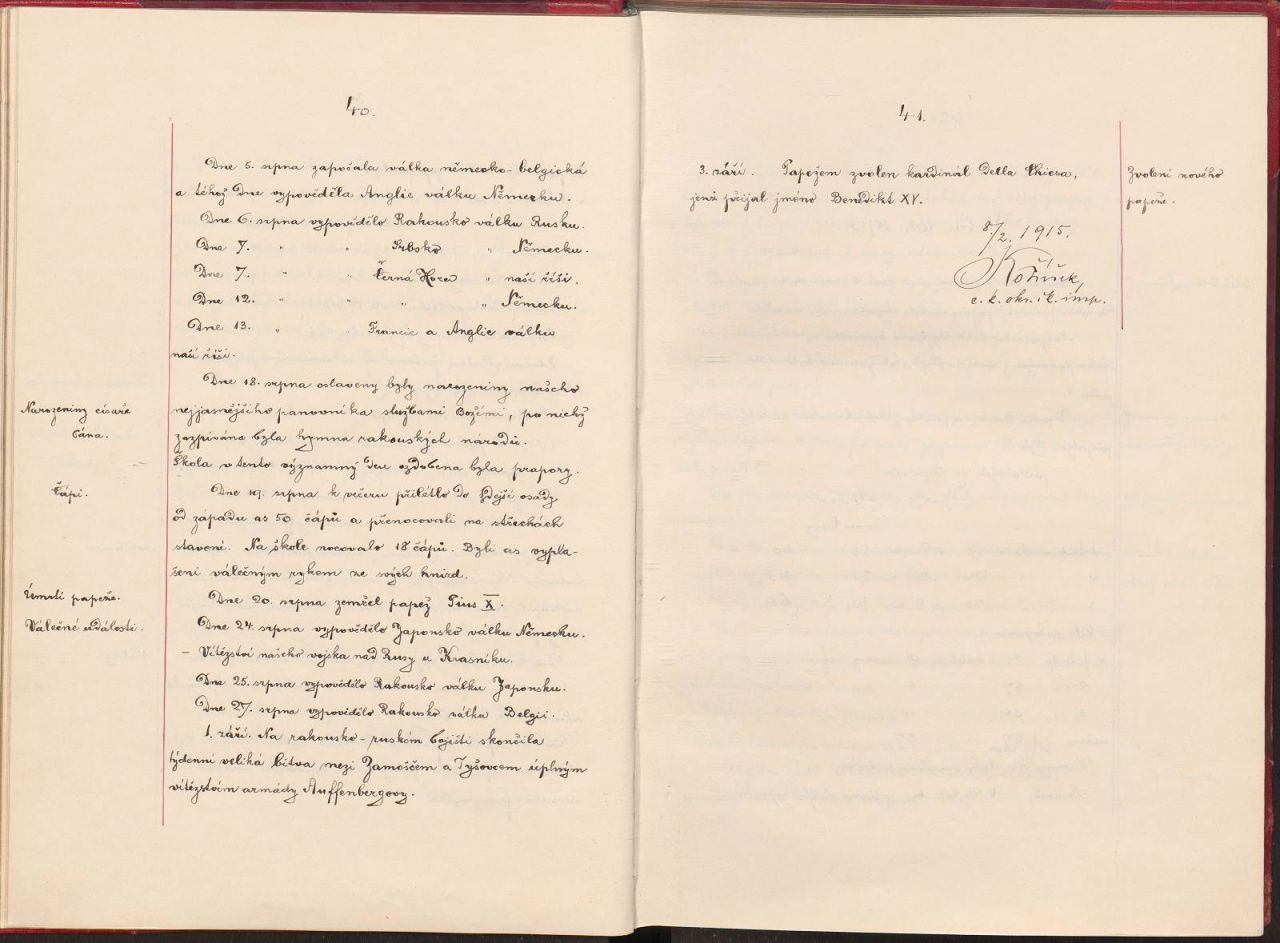 40.
Dne 5. srpna započala válka německo-belgická
a téhož dne vypověděla Anglie válku Německu.
Dne 6. srpna vypovědělo Rakousko válku Rusku.
Dne 7. " " Srbsko " Německu.
Dne 7. " " Černá Hora " naší říši.
Dne 12. " " " " Německu.
Dne 13. " " Francie a Anglie válku
naší říši.
Narozeniny císaře
Pána.
Dne 18. srpna oslaveny byly narozeniny našeho
nejjasnějšího panovníka službami Božími, po nichž
zazpívána byla hymna rakouských národů.
Škola v tento významný den ozdobena byla prapory.
Čápi.
Dne 19. srpna k večeru přilétlo do zdejší osady
od západu as 50 čápů a přenocovali na střechách
stavení. Na škole nocovalo 18 čápů. Byli as vypla-
šeni válečným rykem ze svých hnízd.
Úmrtí papeže.
Dne 20. srpna zemřel papež Pius X.
Válečné události.
Dne 24. srpna vypovědělo Japonsko válku Německu.
- Vítězství našeho vojska nad Rusy u Krasniku.
Dne 25. srpna vypovědělo Rakousko válku Japonsku.
Dne 27. srpna vypovědělo Rakousko válku Belgii.
1. září. Na rakousko-ruském bojišti skončila
týdenní veliká bitva mezi Zamoščem a Tyšovcem úplným
vítězstvím armády Auffenbergovy.
41.
3. září. Papežem zvolen kardinál Della Chiesa,
jenž přijal jméno Benedikt XV.
Zvolení nového
papeže.
8/2. 1915.
c. k. okr. šk. insp.